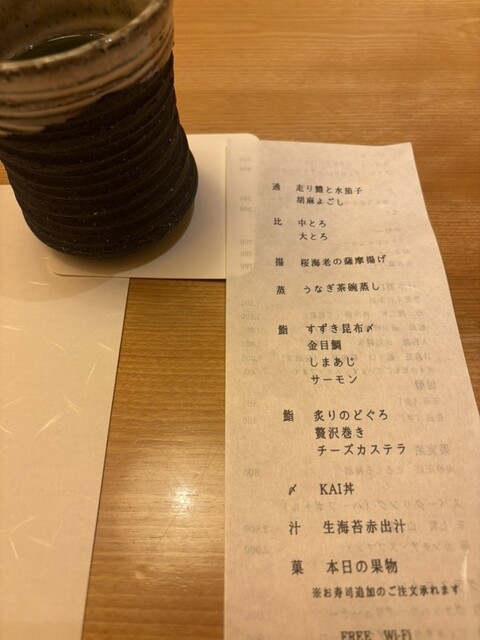 通 走り鱧と水茄子
胡麻よごし
比 中とろ
大とろ
揚 桜海老の薩摩揚げ
蒸 うなぎ茶碗蒸し
鮨 すずき昆布〆
金目鯛
しまあじ
サーモン
鮨 炙りのどぐろ
贅沢巻き
チーズカステラ
〆 KAI丼
汁 生海苔赤出汁
菓 本日の果物
※お寿司追加のご注文承れます
FREE Wi-Fi